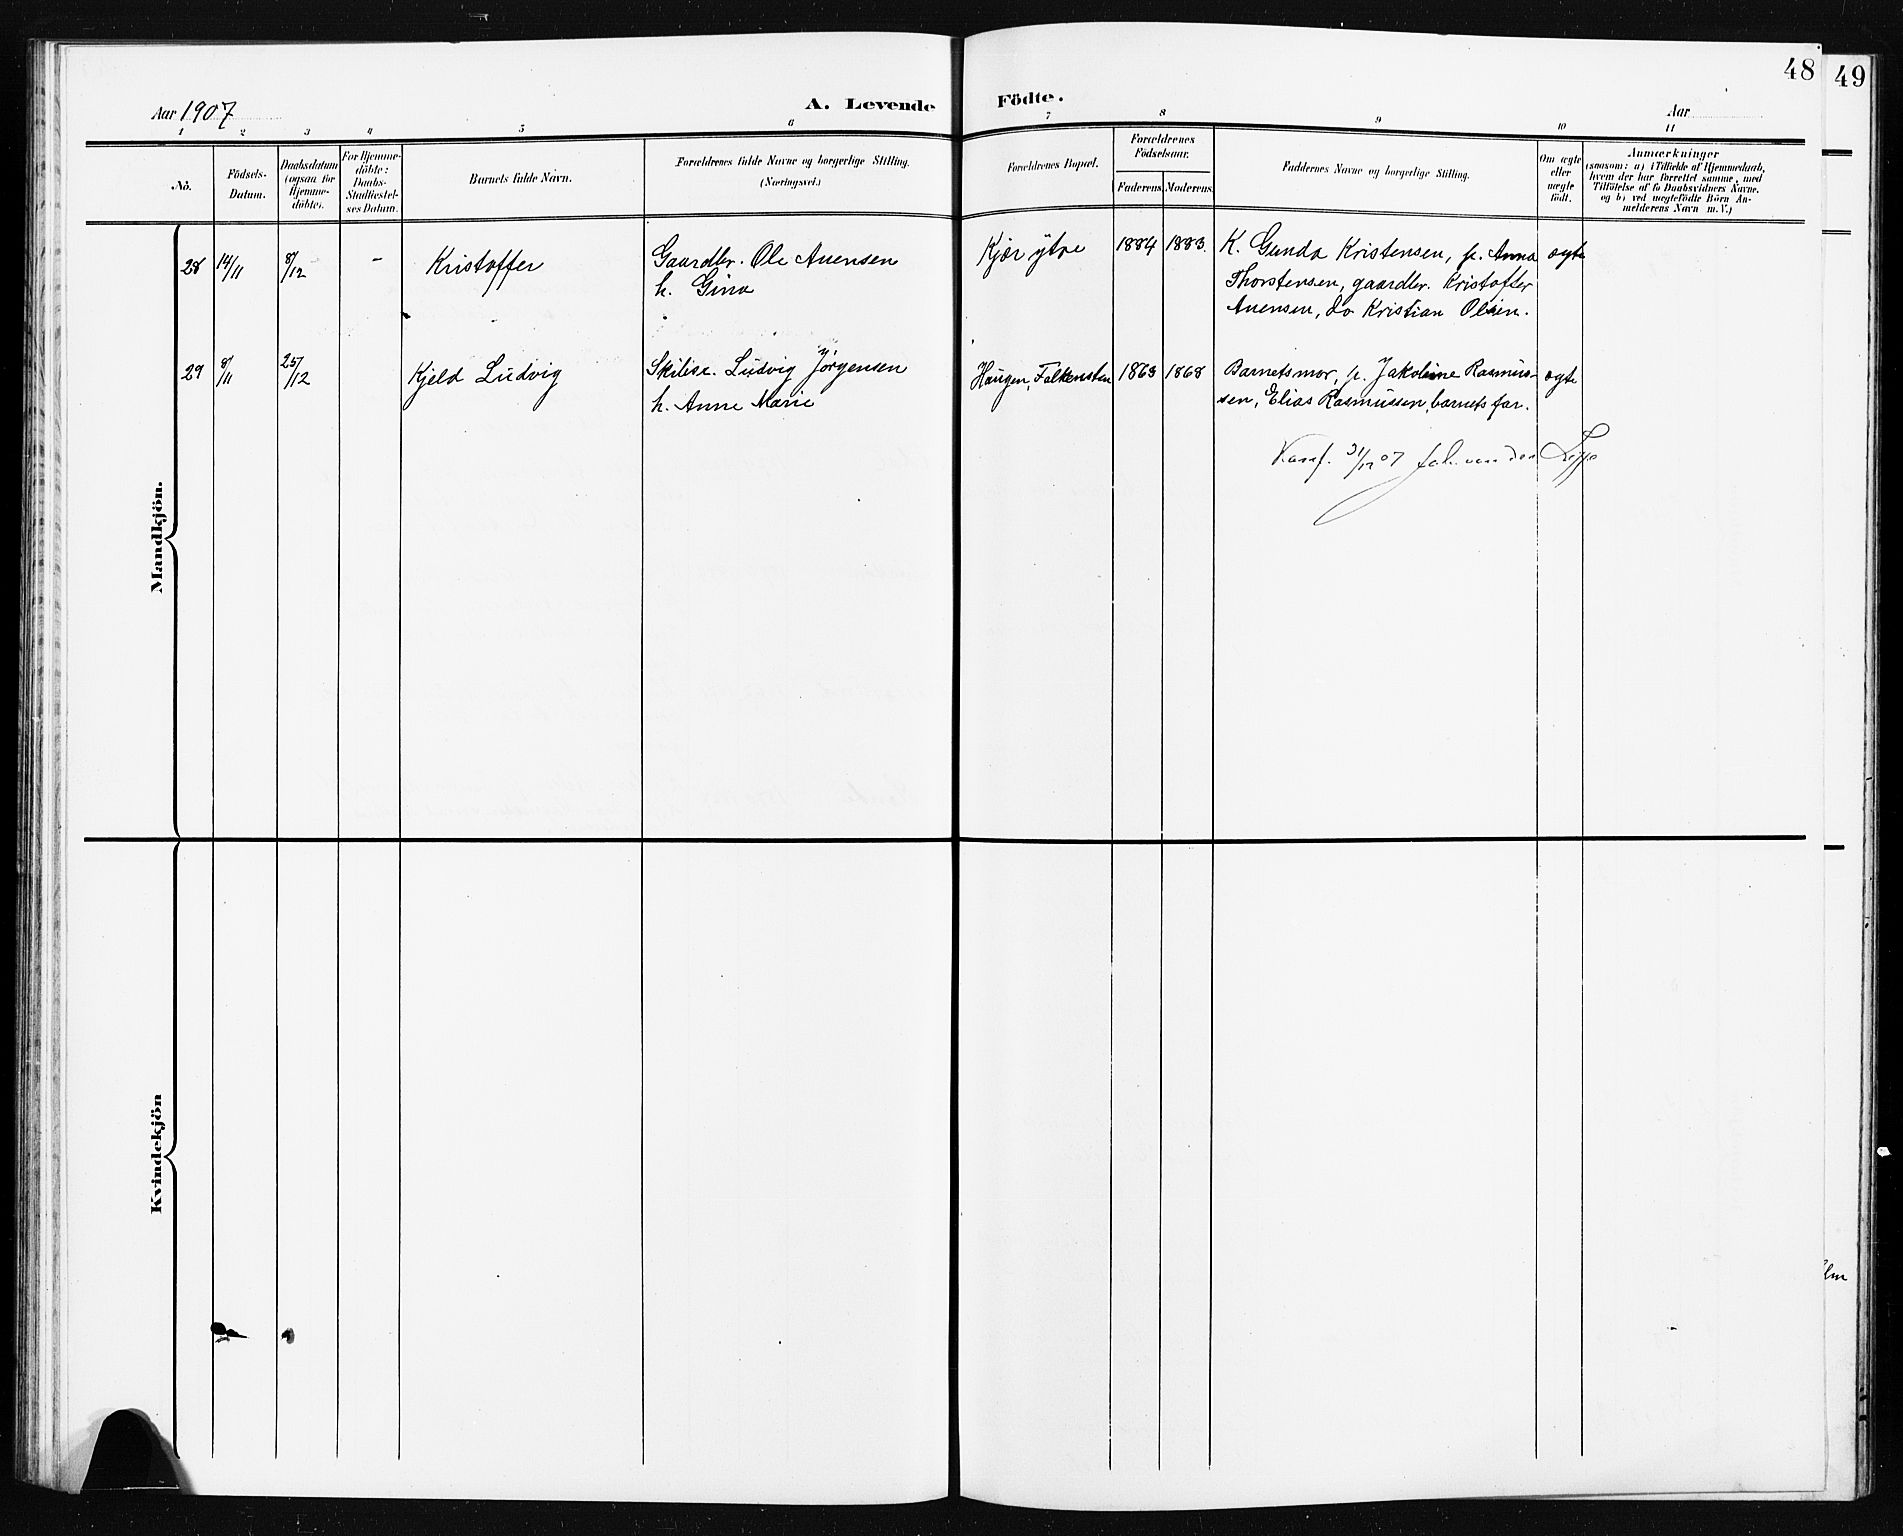 48
49
Aar 1907
A. Levende Födte.
Aar
1 2 3 4 5 6 7 8 9 10 11
No.
Födsels-
Datum.
Daabsdatum
(ogsaa for
Hjemme-
döbte).
For Hjemme-
döbte:
Daabs-
Stadfæstel-
ses Datum.
Barnets fulde Navn.
Forældrenes fulde Navne og borgerlige Stilling.
(Næringsvei.)
Forældrenes Bopæl.
Forældrenes
Födselsaar.
Faderens.
Moderens.
Faddernes Navne og borgerlige Stilling.
Om ægte
eller
uægte
födt.
Anmærkninger
(saasom: a) i Tilfælde af Hjemmedaab,
hvem der har forrettet samme, med
Tilföielse af to Daabsvidners Navne.
og b) ved uægtefödte Börn An-
melderens Navn m. V.)
Mandkjön.
28 14/11 8/12 - Kristoffer Gaardbr. Ole Auensen Kjær ytre 1884 1883. K. Gunda Kristensen, p. Anna ægte
h. Gina Thorstensen, gaardbr. Kristoffer
Auensen, do Kristian Olsen.
29 8/11 25/12 Kjeld Ludvig Skibsr. Ludvig Jørgensen Haugen, Falkensten 1863 1868 Barnets mor, p. Jakobine Rasmus- ægte
h. Anne Marie sen, Elias Rasmussen, barnets far.
31/12 07 Joh. van der Lippe
Kvindekjön